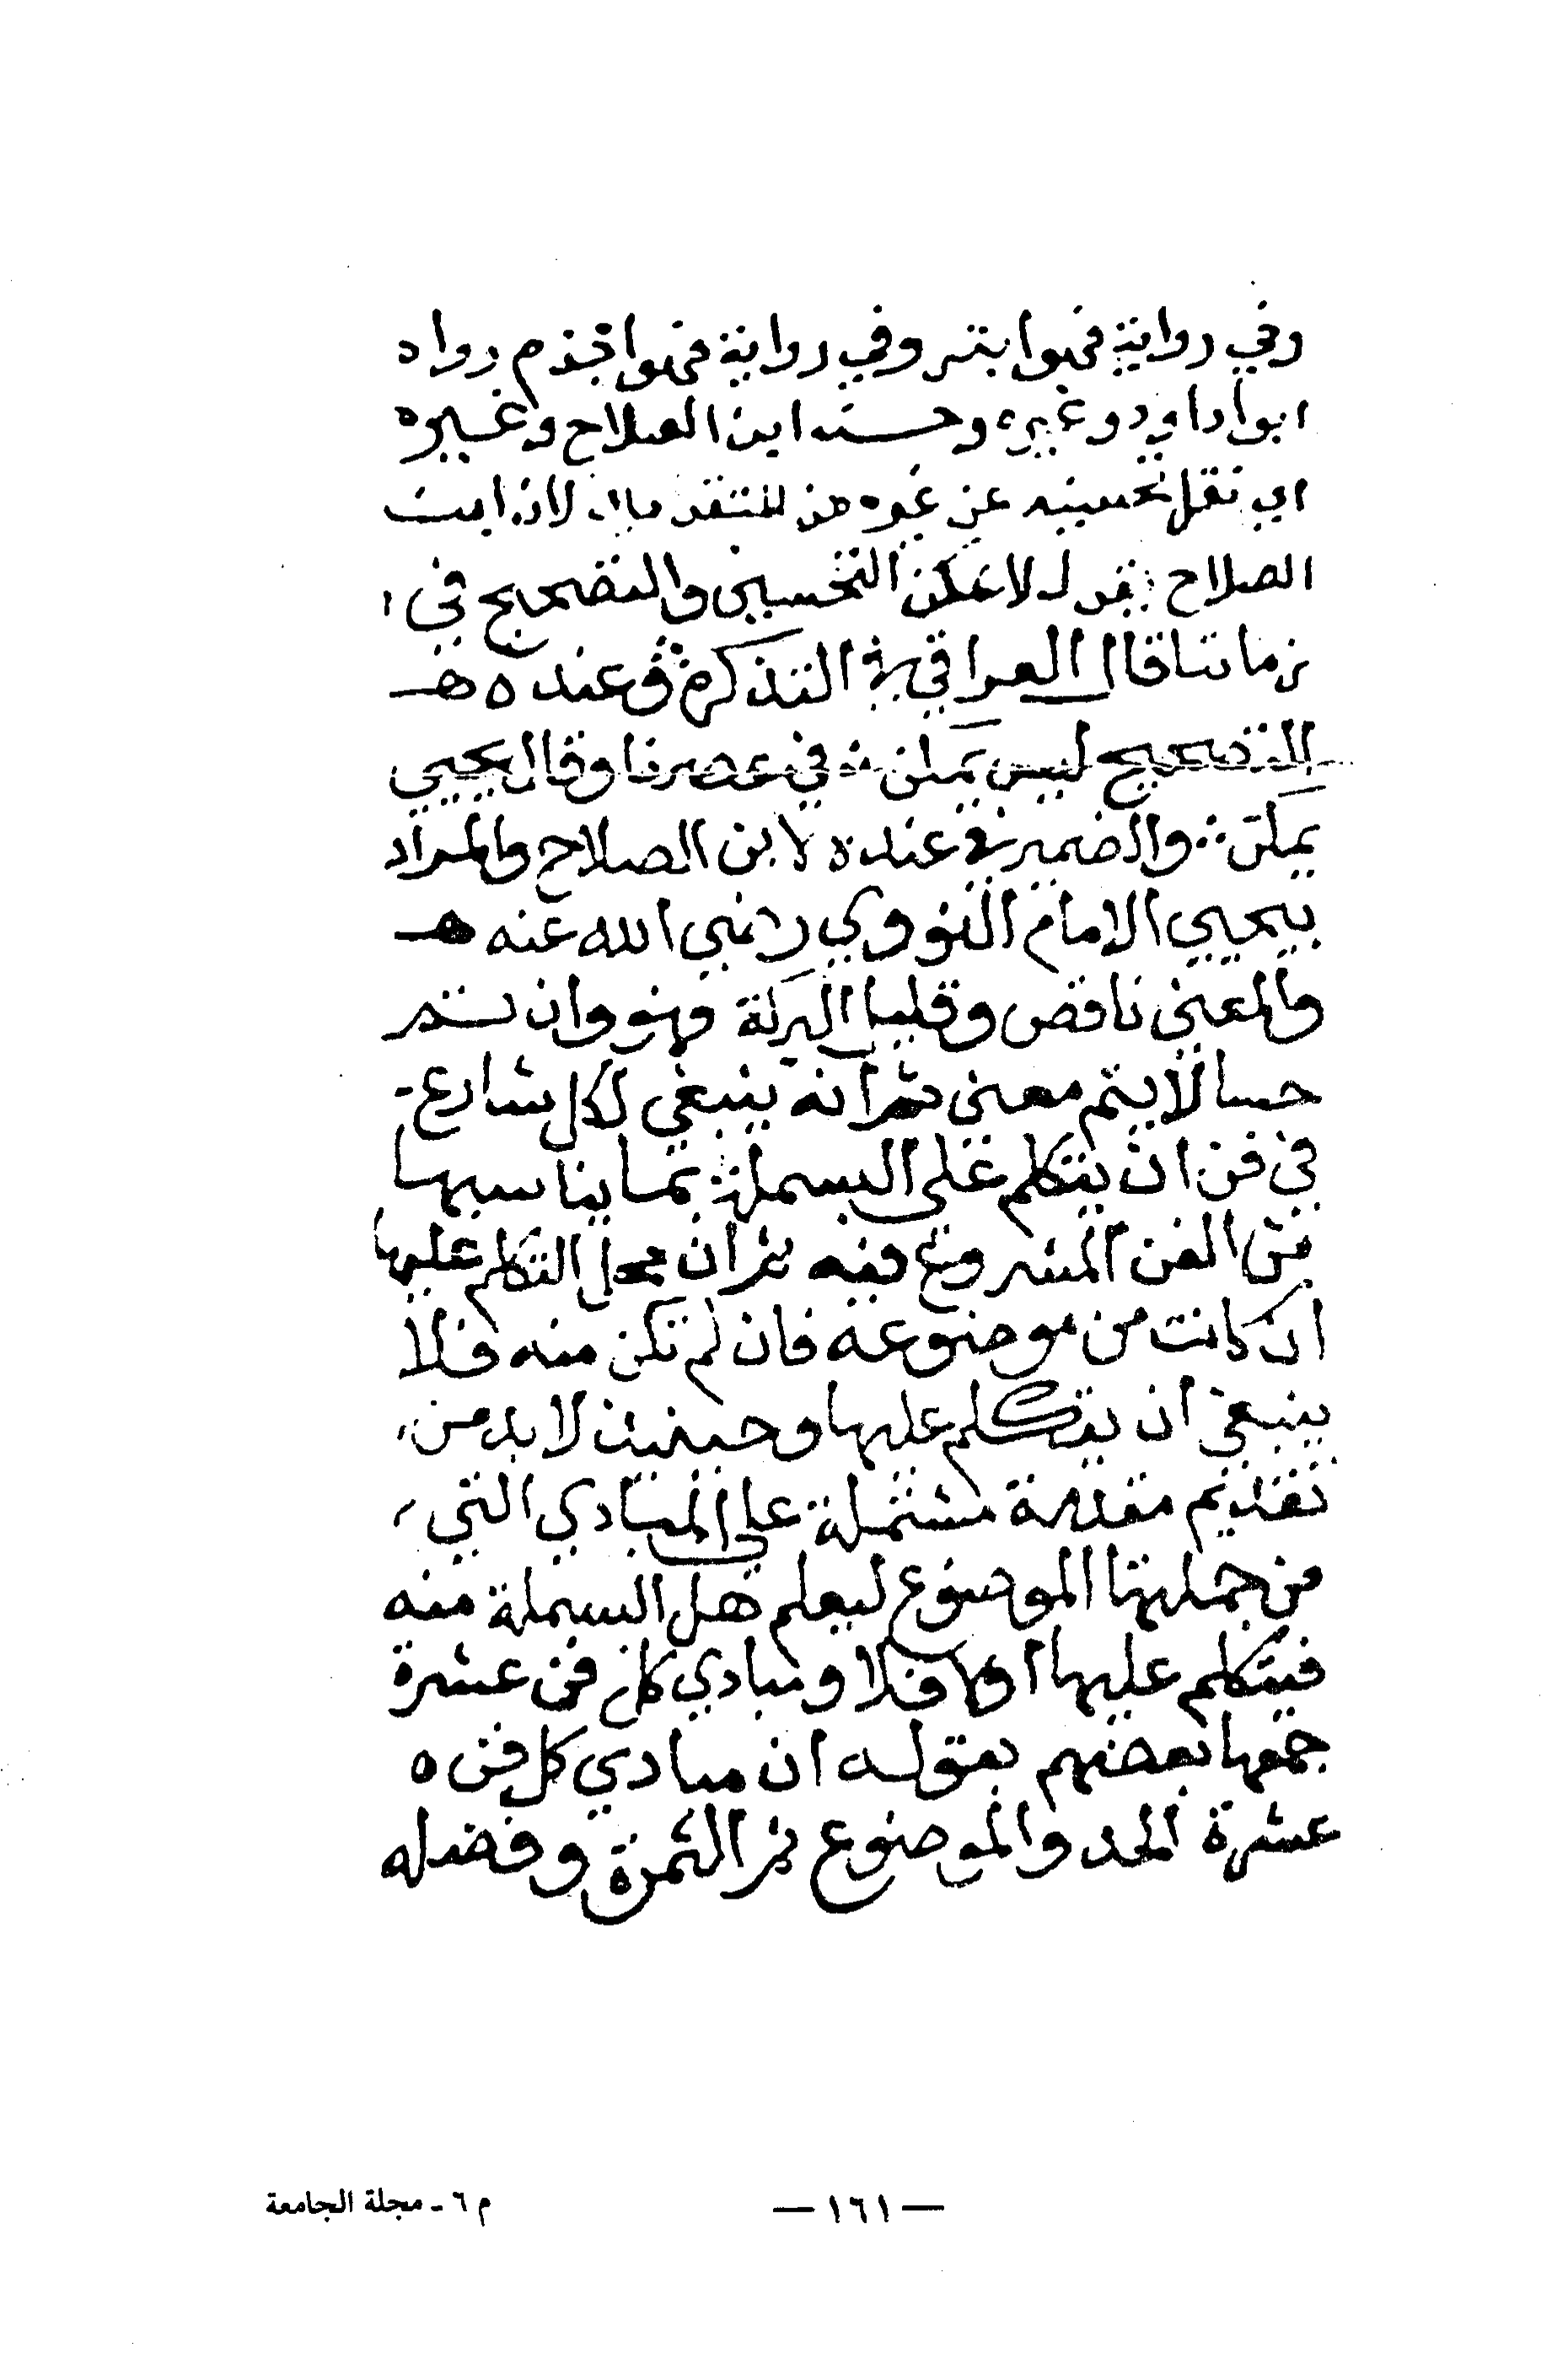 وفي رواية فهوابتر وفي رواية فهواجذم رواه
ابوا داود وغيره وحسنه ابن الصلاح وغيره
اي نقل تحسينه عن غيره من المتقدمين لان ابن
الصلاح يقول لا يمكن التحسين والتصحيح في
زماننا قال العراقي في التذكرة وعنده هـ
التصحيح ليس يمكن ∴ في عصرنا وقال يحيي
يمكن ∴ والضمير في عنده لابن الصلاح والمراد
بيحيي الامام النووي رضي الله عنه هـ
والمعني ناقص وقليل البركة فهو وان تم
حسا لا يتم معني ثم انه ينبغي لكل شارع
في فن ان يتكلم علي البسملة بما يناسبها
من الفن المشروع فيه ثم ان محل التكلم عليها
ان كانت من موضوعه فان لم تكن منه فلا
ينبغي ان يتكلم عليها وحينئذ لا بد من
تقديم مقدمة مشتملة علي المبادي التي
من جملتها الموضوع ليعلم هل البسملة منه
فيتكلم عليها اولا فلا ومبادي كل فن عشرة
جمعها بعضهم بقوله ان مبادي كل فن ٥
عشرة الحد والموضوع ثم الثمرة وفضله
— ١٦١ —
م ٦ ـ مجلة الجامعة